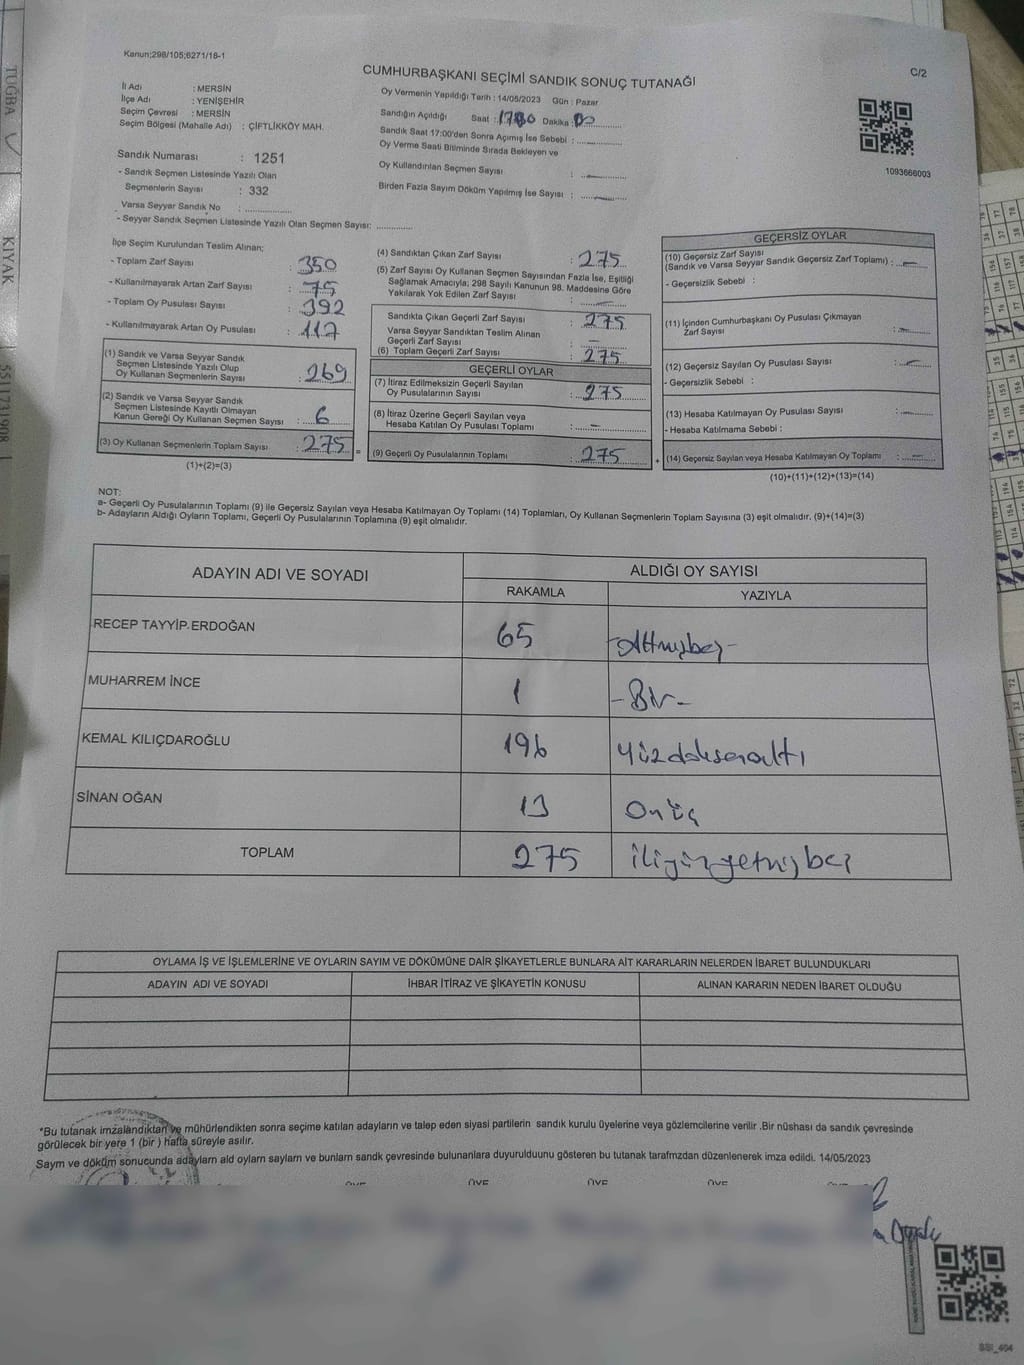 Kanun;298/105;6271/18-1
CUMHURBAŞKANI SEÇİMİ SANDIK SONUÇ TUTANAĞI
C/2
İl Adı : MERSİN
İlçe Adı : YENİŞEHİR
Seçim Çevresi : MERSİN
Seçim Bölgesi (Mahalle Adı) : ÇİFTLİKKÖY MAH.
Sandık Numarası : 1251
- Sandık Seçmen Listesinde Yazılı Olan
Seçmenlerin Sayısı : 332
Varsa Seyyar Sandık No : ..............
- Seyyar Sandık Seçmen Listesinde Yazılı Olan Seçmen Sayısı: ............
Oy Vermenin Yapıldığı Tarih : 14/05/2023 Gün : Pazar
Sandığın Açıldığı Saat : Dakika :
Sandık Saat 17:00'den Sonra Açılmış İse Sebebi : ..............
Oy Verme Saati Bitiminde Sırada Bekleyen ve
Oy Kullandırılan Seçmen Sayısı :
Birden Fazla Sayım Döküm Yapılmış İse Sayısı :
1093666003
İlçe Seçim Kurulundan Teslim Alınan;
- Toplam Zarf Sayısı : 350
- Kullanılmayarak Artan Zarf Sayısı : 75
- Toplam Oy Pusulası Sayısı : 392
- Kullanılmayarak Artan Oy Pusulası : 117
(1) Sandık ve Varsa Seyyar Sandık
Seçmen Listesinde Yazılı Olup
Oy Kullanan Seçmenlerin Sayısı : 269
(2) Sandık ve Varsa Seyyar Sandık
Seçmen Listesinde Kayıtlı Olmayan
Kanun Gereği Oy Kullanan Seçmen Sayısı : 6
(3) Oy Kullanan Seçmenlerin Toplam Sayısı : 275 =
(1)+(2)=(3)
(4) Sandıktan Çıkan Zarf Sayısı : 275
(5) Zarf Sayısı Oy Kullanan Seçmen Sayısından Fazla İse, Eşitliği
Sağlamak Amacıyla; 298 Sayılı Kanunun 98. Maddesine Göre
Yakılarak Yok Edilen Zarf Sayısı :
Sandıkta Çıkan Geçerli Zarf Sayısı : 275
Varsa Seyyar Sandıktan Teslim Alınan
Geçerli Zarf Sayısı : -
(6) Toplam Geçerli Zarf Sayısı : 275
GEÇERLİ OYLAR
(7) İtiraz Edilmeksizin Geçerli Sayılan
Oy Pusulalarının Sayısı : 275
(8) İtiraz Üzerine Geçerli Sayılan veya
Hesaba Katılan Oy Pusulası Toplamı : -
(9) Geçerli Oy Pusulalarının Toplamı : 275 +
GEÇERSİZ OYLAR
(10) Geçersiz Zarf Sayısı
(Sandık ve Varsa Seyyar Sandık Geçersiz Zarf Toplamı) : -
- Geçersizlik Sebebi :
(11) İçinden Cumhurbaşkanı Oy Pusulası Çıkmayan
Zarf Sayısı : -
(12) Geçersiz Sayılan Oy Pusulası Sayısı : -
- Geçersizlik Sebebi :
(13) Hesaba Katılmayan Oy Pusulası Sayısı : -
- Hesaba Katılmama Sebebi :
(14) Geçersiz Sayılan veya Hesaba Katılmayan Oy Toplamı : -
(10)+(11)+(12)+(13)=(14)
NOT:
a- Geçerli Oy Pusulalarının Toplamı (9) ile Geçersiz Sayılan veya Hesaba Katılmayan Oy Toplamı (14) Toplamları, Oy Kullanan Seçmenlerin Toplam Sayısına (3) eşit olmalıdır. (9)+(14)=(3)
b- Adayların Aldığı Oyların Toplamı, Geçerli Oy Pusulalarının Toplamına (9) eşit olmalıdır.
ADAYIN ADI VE SOYADI ALDIĞI OY SAYISI
RAKAMLA YAZIYLA
RECEP TAYYİP ERDOĞAN 65 -Altmışbeş-
MUHARREM İNCE 1 -Bir-
KEMAL KILIÇDAROĞLU 196 Yüzdoksanaltı
SİNAN OĞAN 13 Onüç
TOPLAM 275 ikiyüzyetmişbeş
OYLAMA İŞ VE İŞLEMLERİNE VE OYLARIN SAYIM VE DÖKÜMÜNE DAİR ŞİKAYETLERLE BUNLARA AİT KARARLARIN NELERDEN İBARET BULUNDUKLARI
ADAYIN ADI VE SOYADI İHBAR İTİRAZ VE ŞİKAYETİN KONUSU ALINAN KARARIN NEDEN İBARET OLDUĞU
*Bu tutanak imzalandıktan ve mühürlendikten sonra seçime katılan adayların ve talep eden siyasi partilerin sandık kurulu üyelerine veya gözlemcilerine verilir .Bir nüshası da sandık çevresinde
görülecek bir yere 1 (bir ) hafta süreyle asılır.
Sayım ve döküm sonucunda adayların ald oyların sayların ve bunların sandk çevresinde bulunanlara duyurulduunu gösteren bu tutanak tarafmzdan düzenlenerek imza edildi. 14/05/2023
ÜYE ÜYE ÜYE
SSI_404
TUĞBA
KIYAK